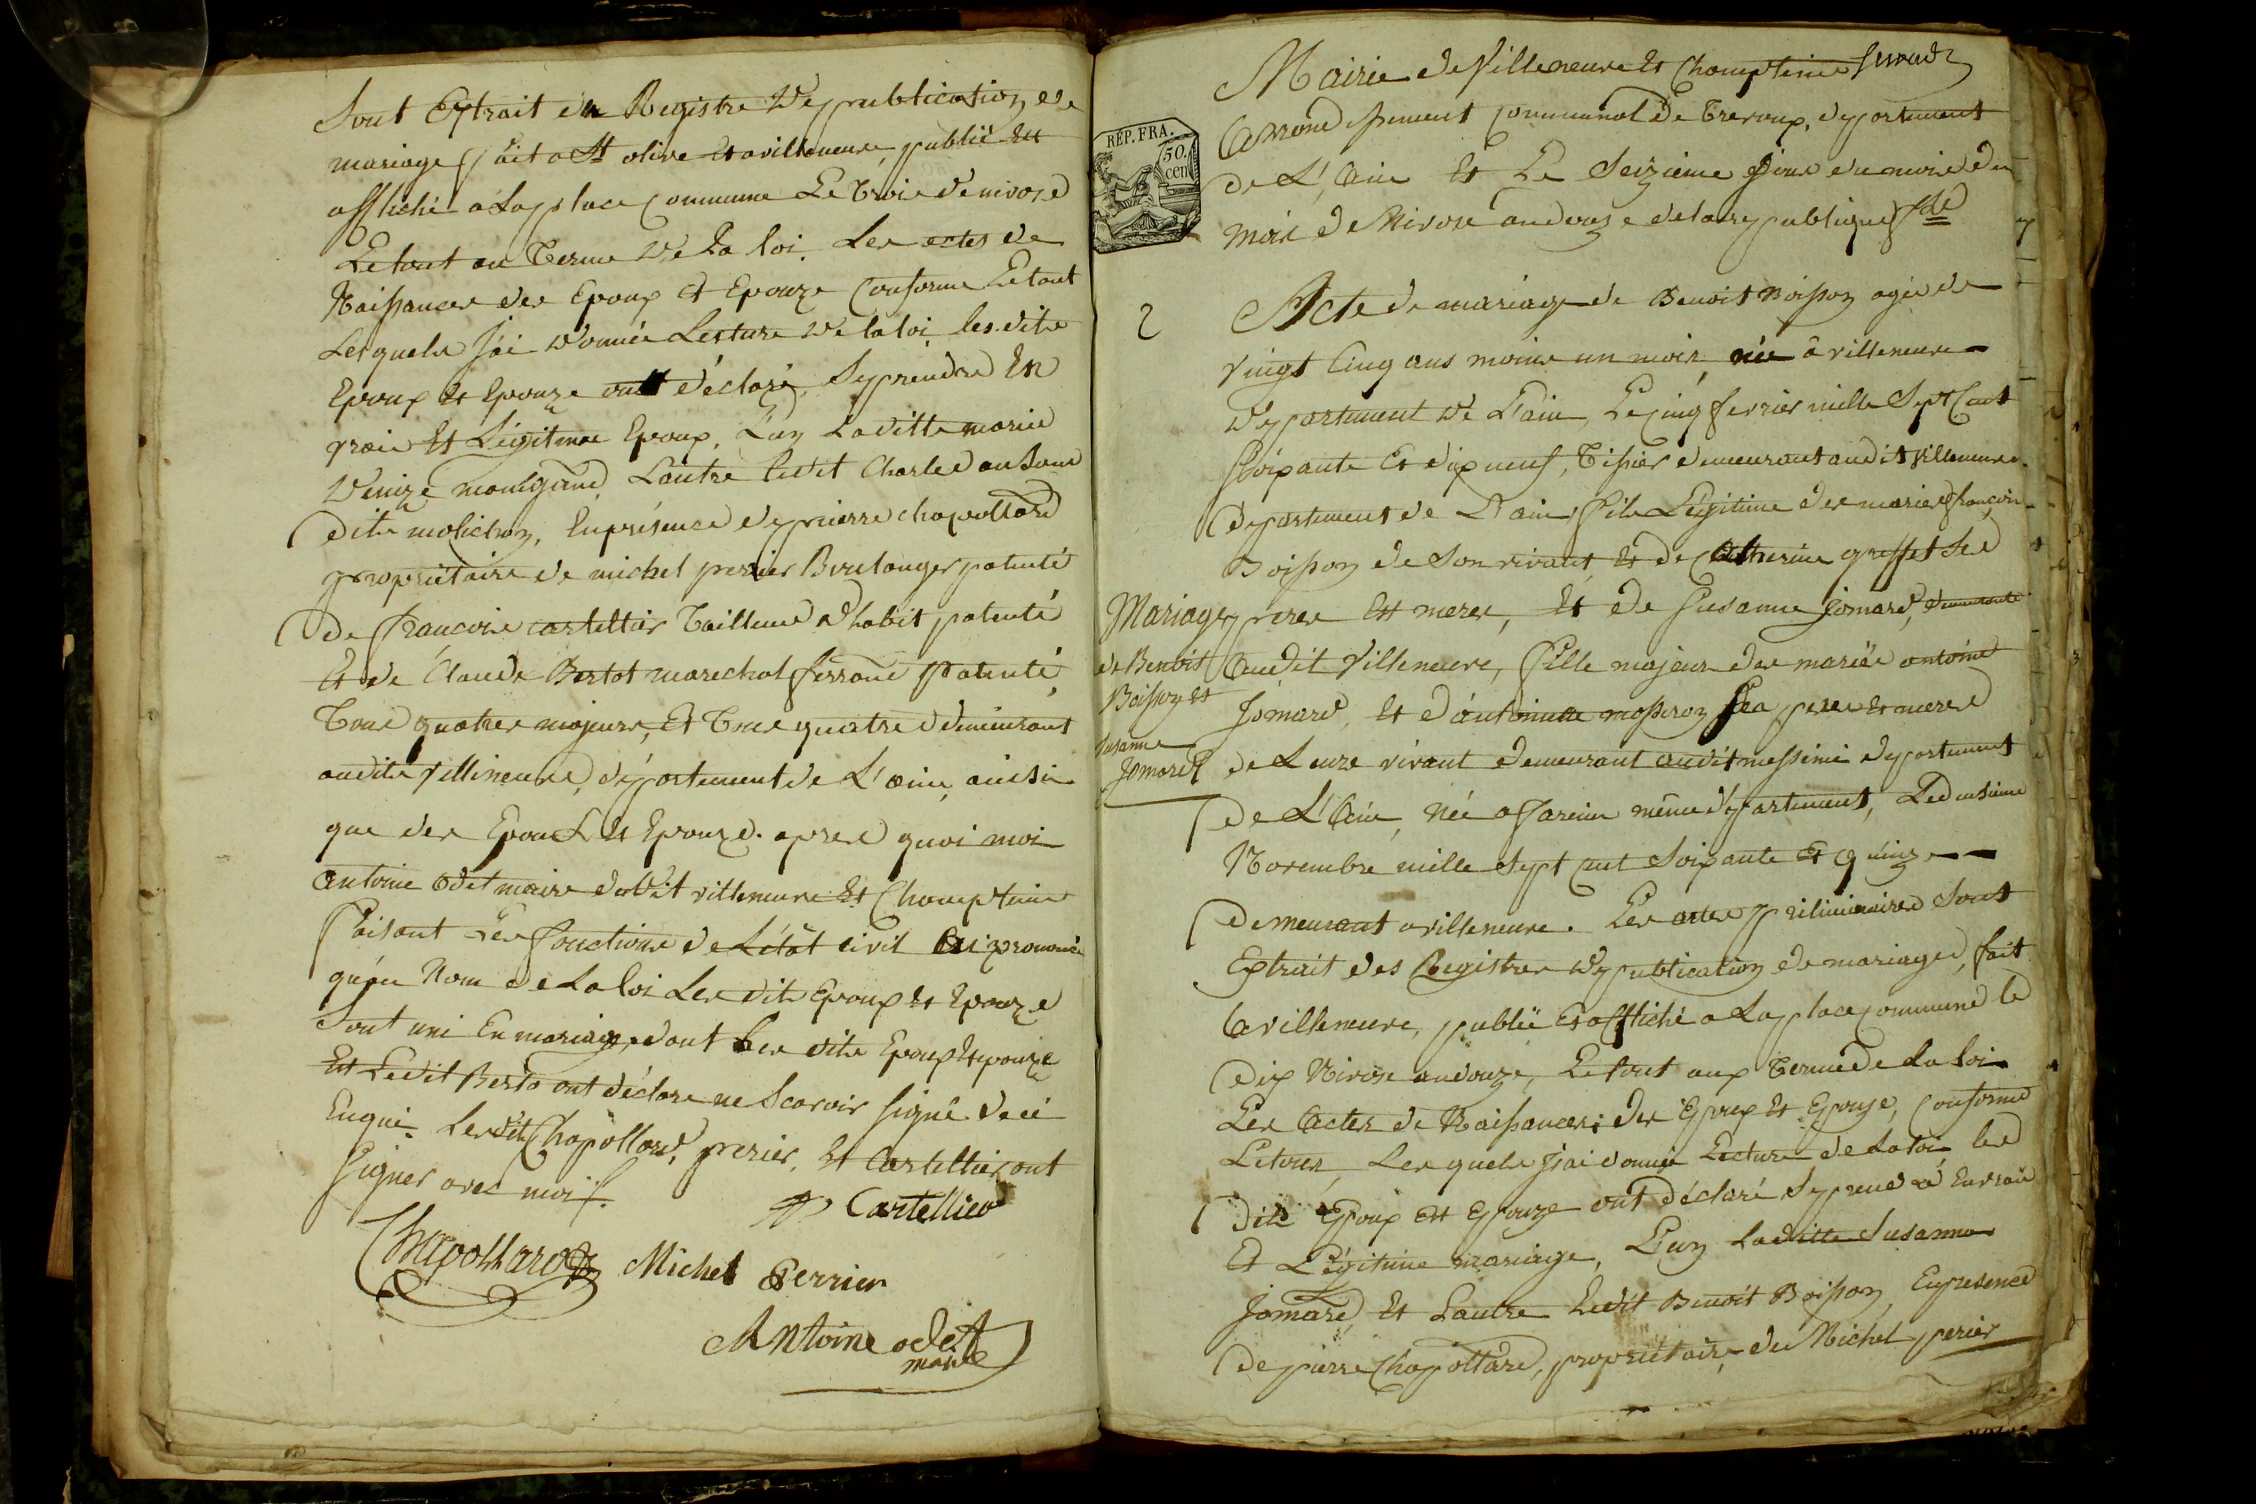 Sont Extrait du Registre de publication de
mariage fait a St olive et a villeneuve, publié et
affiché a La place Commune Le trois de nivose
Le tout au terme de la loi. Les actes de
Naissances des Epoux et Epouze Conforme Le tout
Les quels J'ai donnée Lecture de la loi les dits
Epoux et Epouze ont déclaré Se prendre En
vraie et Légitime Epoux, L'un La ditte marie
Lautre le dit Charle
dits molichon, En présence de pierre chapollard
propriétaire de michel perier Boulanger patenté
de francois cartellier Tailleur d'habit, patenté
Et de Claude Bertot marechal ferrand Patenté,
Tous quatres majeurs, Et Tous quatre demeurant
au dits villeneuve, département de L'ain, ainsi
que des Epoux Et Epouze. apres quoi moi
antoine odet maire du dit villeneuve et Chaneins
faisant Les fonctions de L'état civil ai prononcé
qu'au Nom de La loi Les dits Epoux et Epouze
Sont uni En mariage, dont Les dits Epoux et Epouze
Et Ledit Berto ont déclare ne Scavoir signé de ce
Enquis. Les dits Chapollard, perier, Et Cartellier ont
Signer avec moi
Cartellier
Chapollard Michel Perrier
Antoine odet
maire
Mairie de Villeneuve et
Arrondissement Communal de Trevoux, département
de L'Ain Et Le Seizieme Jour du mois de
mois de Nivose an douze de la republique
RÉP. FRA.
50.
cen
2
Acte de mariage de Benoit Boisson agée de
vingt Cinq ans moins un mois, née à villeneuve
département de L'ain, Le cinq fevrier mille Sept Cent
Soixante Et dix neuf, Tissier demeurant au dit villeneuve
departement de L'ain, fils Légitime des mariés françois
Boisson de Son vivant, et de Catherine
peres et meres, Et de Susanne Jomard, demeurante
Audit Villeneuve, fille majeur des mariée antoine
Jomard, Et d'antoinette
de Leurs vivant demeurant audit messimi département
de L'Ain, née a fareins même département, Le deusieme
Novembre mille Sept cent Soixante Et quinze
demeurant a villeneuve. Les actes préliminaires Sont
Extrait des Registres de publication de mariage, fait
A villeneuve, publié Et affiché a La place commune le
dix Nivose an douze, Le tout aux terme de La Loi
Les Actes de Naissances des Epoux Et Epouse, Conforme
Le tout, Les quels J'ai donnée Lecture de La loi les
dits Epoux Et Epouze ont déclaré Se prendre En vraie
Et Légitime mariage, L'un La ditte Susanne
Jomard, Et Lautre Ledit Benoit Boisson, En présence
de pierre Chapollard, propriétaire, de Michel perier
Mariage
de Benoit
Boisson et
Susanne
Jomard